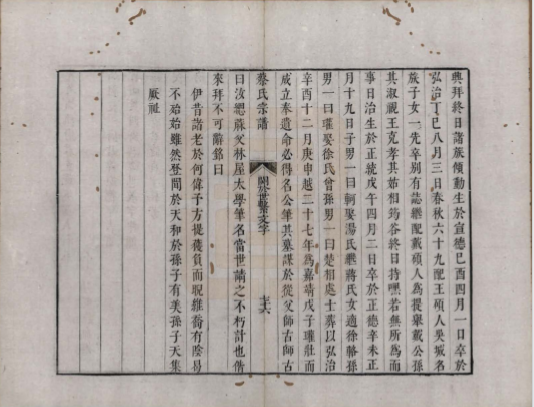 興拜終日諸族傾動生於宣德己酉四月一日卒於
弘治丁巳八月三日春秋六十九配王碩人吳城名
族子女一先卒别有誌繼配戴碩人為提舉戴公孫
其淑視王克孝其姑相筠谷終日持嘿若無所為而
事日治生於正統戊午四月二日卒於正德辛未正
月十九日子男一曰軻娶湯氏繼蔣氏女適徐賂孫
男一曰瓘娶徐氏曾孫男一曰楚相處士葬以弘治
辛酉十二月庚申越二十七年為嘉靖戊子瓘壯而
成立奉遺命必得名公筆其墓謀於從父師古師古
蔡氏宗譜
關於世繫文字
七十六
曰汝愬蘇父林屋太學筆名當世請之不朽計也偕
來拜不可辭銘曰
伊昔諸老於何偉予方提獲負而睨維喬有陰曷
不始始雖然登聞於天和於孫子有美孫子天集
厥祉